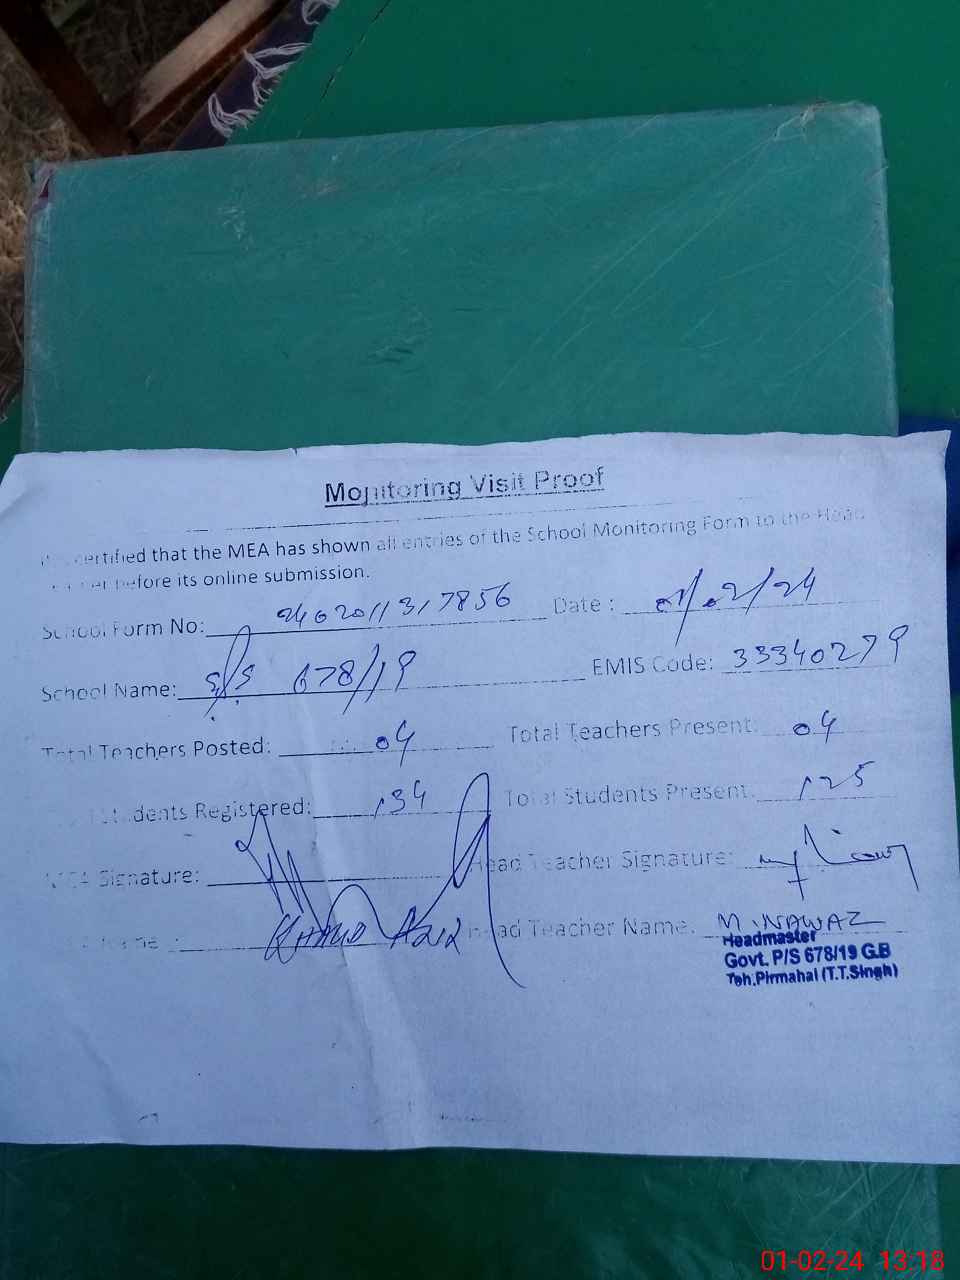 Monitoring Visit Proof
certified that the MEA has shown all entries of the School Monitoring Form to the Head
before its online submission.
School Form No: 2402011317856 Date : 01/02/24
School Name: 678/19 EMIS Code: 33340279
Total Teachers Posted: 04 Total Teachers Present: 04
Students Registered: 134 Total Students Present: 125
MEA Signature: Head Teacher Signature:
Name : Head Teacher Name. M. NAWAZ
Headmaster
Govt. P/S 678/19 G.B
Teh.Pirmahal (T.T.Singh)
01-02-24 13:18